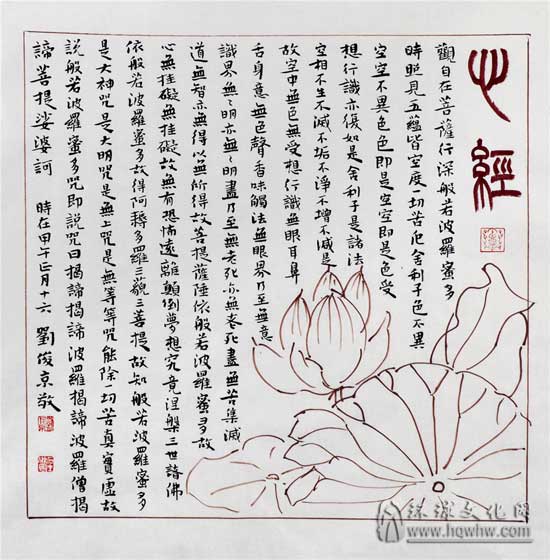 心經
觀自在菩薩行深般若波羅蜜多
時照見五蘊皆空度一切苦厄舍利子色不異
空空不異色色即是空空即是色受
想行識亦復如是舍利子是諸法
空相不生不滅不垢不淨不增不減是
故空中無色無受想行識無眼耳鼻
舌身意無色聲香味觸法無眼界乃至無意
識界無〻明亦無〻明盡乃至無老死亦無老死盡無苦集滅
道無智亦無得以無所得故菩提薩埵依般若波羅蜜多故
心無挂礙無挂礙故無有恐怖遠離顛倒夢想究竟涅槃三世諸佛
依般若波羅蜜多故得阿耨多羅三藐三菩提故知般若波羅蜜多
是大神咒是大明咒是無上咒是無等等咒能除一切苦真實虛故
說般若波羅蜜多咒即說咒曰揭諦揭諦波羅揭諦波羅僧揭
諦菩提娑婆訶 時在甲午正月十六 劉俊京敬
环球文化网
www.hqwhw.com